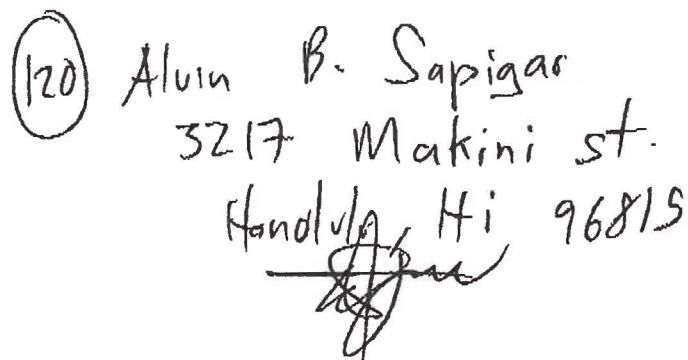 120 Alvin B. Sapigao
3217 Makini st.
Honolulu, Hi 96815